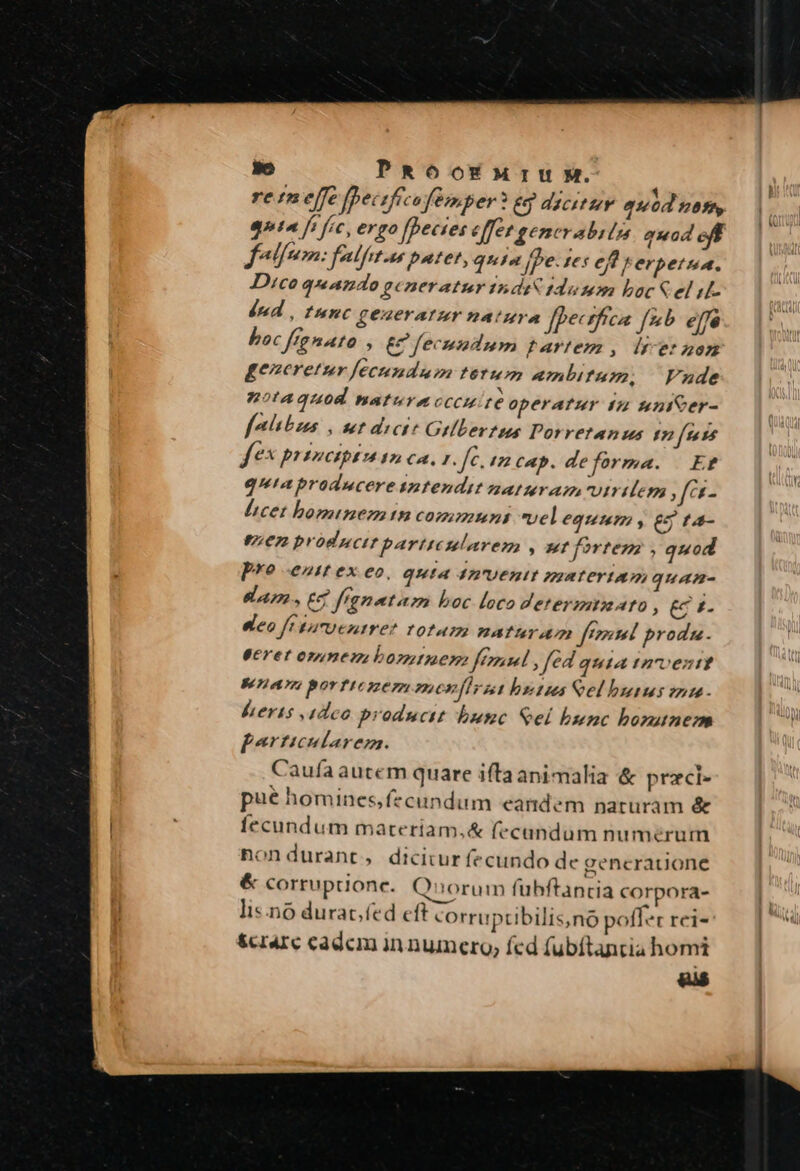 PROOEMIUM.
rem esse specifico semper? & dicitur quòd non,
quia si sic, ergo species esset generabilis quod est
falsum: falsitas patet, quia species est perpetua.
Dico quando generatur indiuiduum hoc vel il-
lud, tunc generatur natura specifica sub esse
hoc signato, & secundum partem, licet non
generetur secundum totum ambitum, Vnde
nota quod natura occulte operatur in vniver-
salibus, ut dicit Gilbertus Porretanus in suis
sex principiis in ca. 1. sc. in cap. de forma. Et
quia producere intendit naturam virilem, sci-
licet hominem in communi vel equum, & ta-
men producit particularem, ut fortem, quod
pro-enit ex eo, quia inuenit materiam quan-
dam, & signatam hoc loco determinato, & i-
deo si inueniret totam naturam simul produ-
ceret omnem hominem simul, sed quia inuenit
unam portionem menstrui huius vel huius mu-
lieris, ideo producit hunc vel hunc hominem
particularem.
Causa autem quare ista animalia & præci-
puè homines, secundum eandem naturam &
secundum materiam, & secundum numerum
non durant, dicitur secundo de generatione
& corruptione. Quorum substantia corpora-
lis nō durat, sed est corruptibilis, nō posset rei-
terare eadem in numero, sed substantia homi
nis